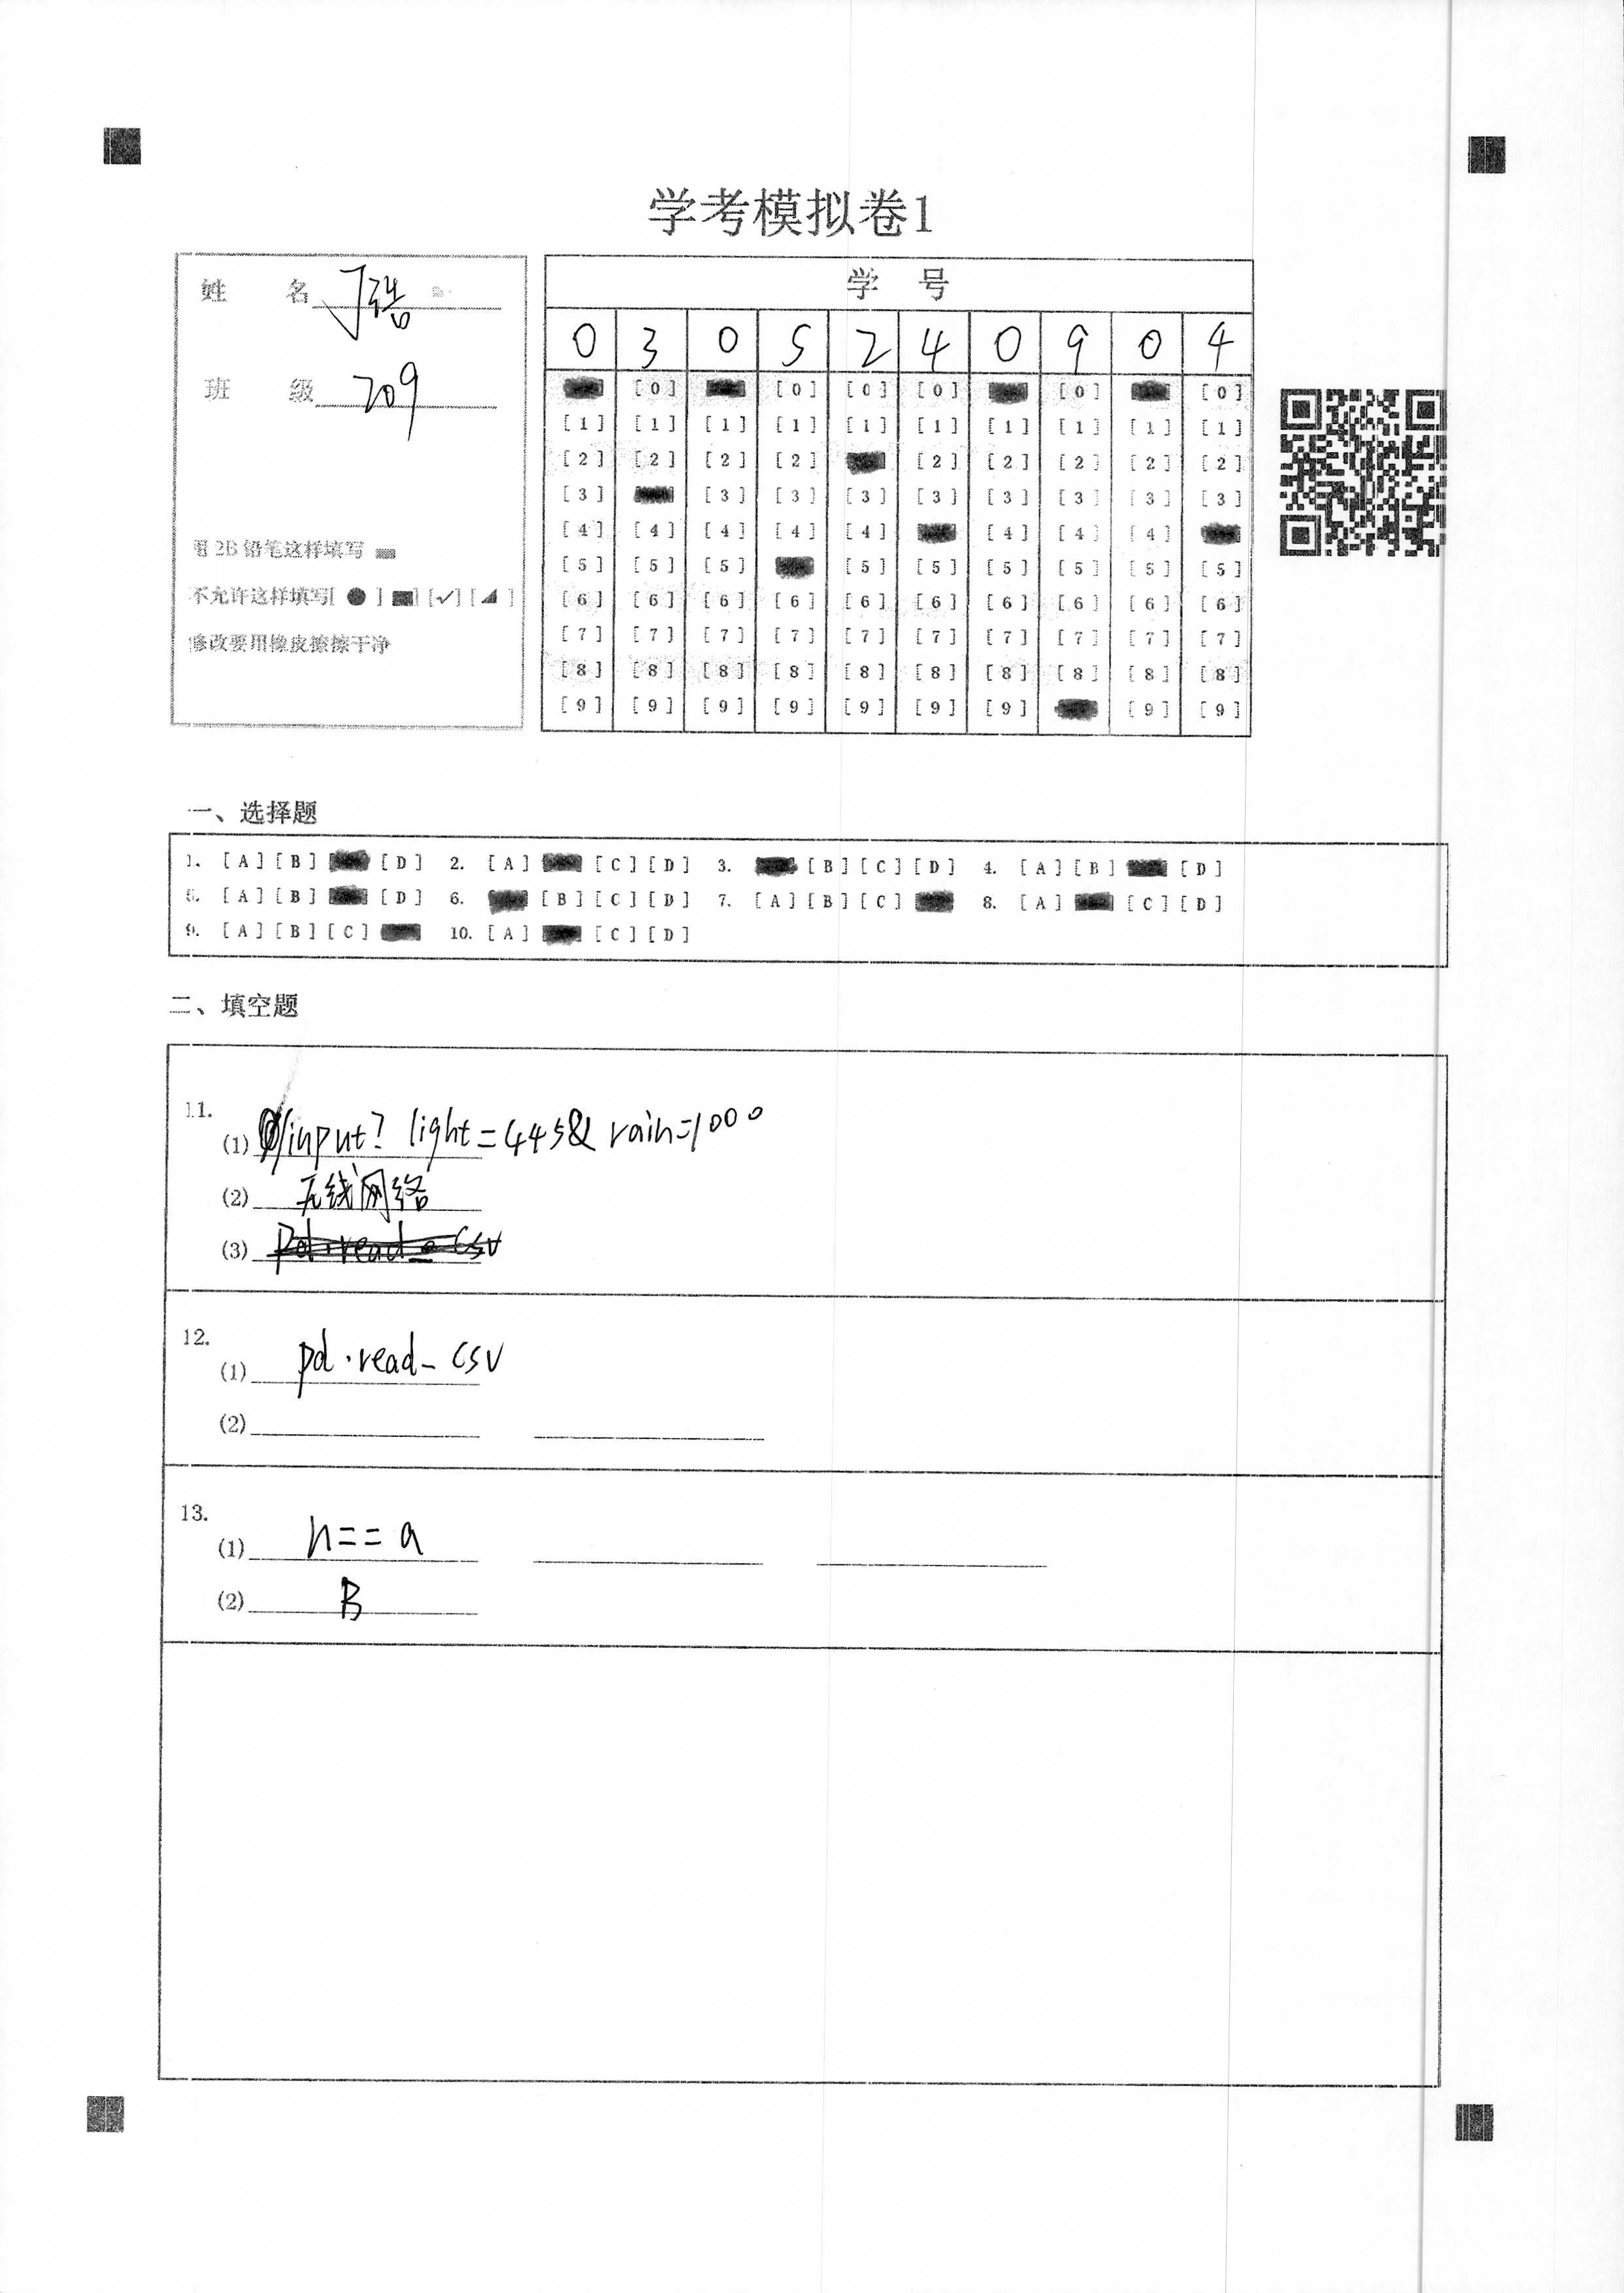 学考模拟卷1
姓 名 丁浩
班 级 209
用 2B 铅笔这样填写
不允许这样填写[ ● ] [✓] [ ]
修改要用橡皮擦擦干净
学 号
0 3 0 5 2 4 0 9 0 4
[0] [0] [0] [0] [0] [0]
[1] [1] [1] [1] [1] [1] [1] [1] [1] [1]
[2] [2] [2] [2] [2] [2] [2] [2] [2]
[3] [3] [3] [3] [3] [3] [3] [3] [3]
[4] [4] [4] [4] [4] [4] [4] [4]
[5] [5] [5] [5] [5] [5] [5] [5] [5]
[6] [6] [6] [6] [6] [6] [6] [6] [6] [6]
[7] [7] [7] [7] [7] [7] [7] [7] [7] [7]
[8] [8] [8] [8] [8] [8] [8] [8] [8] [8]
[9] [9] [9] [9] [9] [9] [9] [9] [9]
一、选择题
1. [A] [B] [D] 2. [A] [C] [D] 3. [B] [C] [D] 4. [A] [B] [D]
5. [A] [B] [D] 6. [B] [C] [D] 7. [A] [B] [C] 8. [A] [C] [D]
9. [A] [B] [C] 10. [A] [C] [D]
二、填空题
11.
(1) /input? light=445& rain=1000
(2) 无线网络
(3) pd.read_csv
12.
(1) pd.read_csv
(2)
13.
(1) n==a
(2) B